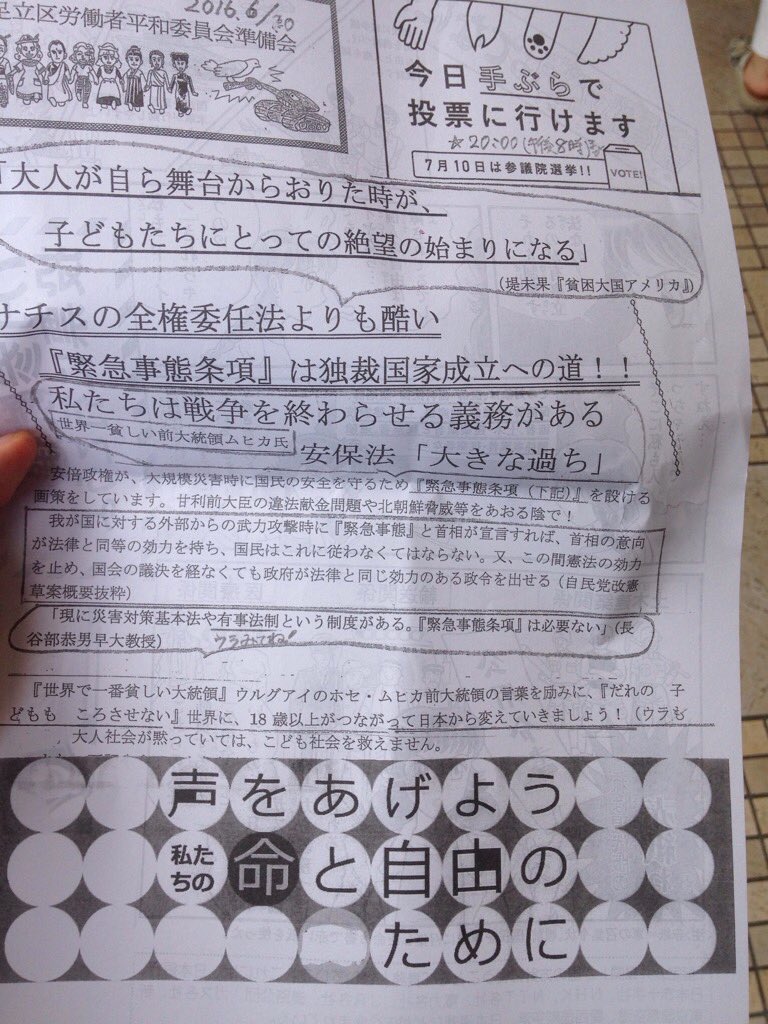 2016.6/30
足立区労働者平和委員会準備会
今日手ぶらで
投票に行けます
☆20:00(午後8時)
7月10日は参議院選挙!!
VOTE!
「大人が自ら舞台からおりた時が、
子どもたちにとっての絶望の始まりになる」
(堤未果『貧困大国アメリカ』)
ナチスの全権委任法よりも酷い
『緊急事態条項』は独裁国家成立への道!!
私たちは戦争を終わらせる義務がある
世界一貧しい前大統領ムヒカ氏
安保法「大きな過ち」
安倍政権が、大規模災害時に国民の安全を守るため『緊急事態条項(下記)』を設ける
画策をしています。甘利前大臣の違法献金問題や北朝鮮脅威等をあおる陰で!
我が国に対する外部からの武力攻撃時に『緊急事態』と首相が宣言すれば、首相の意向
が法律と同等の効力を持ち、国民はこれに従わなくてはならない。又、この間憲法の効力
を止め、国会の議決を経なくても政府が法律と同じ効力のある政令を出せる(自民党改憲
草案概要抜粋)
「現に災害対策基本法や有事法制という制度がある。『緊急事態条項』は必要ない」(長
谷部恭男早大教授)
ウラみてね!
『世界で一番貧しい大統領』ウルグアイのホセ・ムヒカ前大統領の言葉を励みに、『だれの 子
どもも ころさせない』世界に、18歳以上がつながって日本から変えていきましょう!(ウラも
大人社会が黙っていては、こども社会を救えません。
声をあげよう
私たちの命と自由の
ために